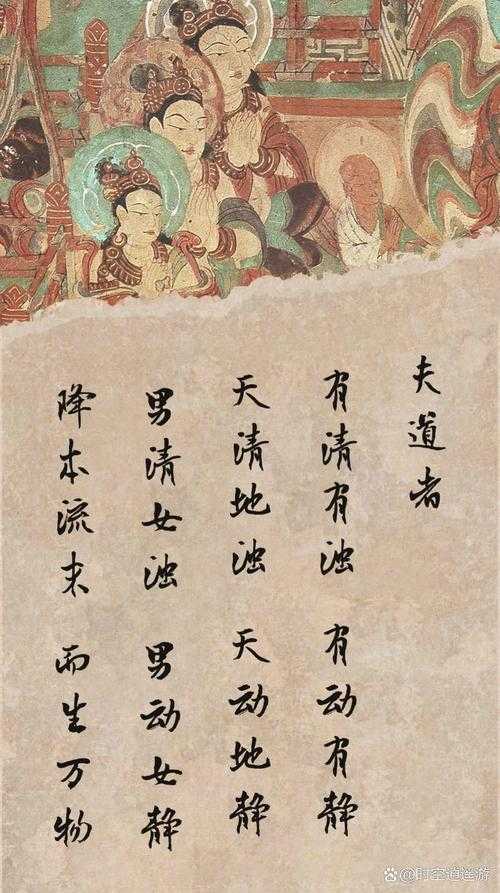 夫道者
有清有浊 有动有静
天清地浊 天动地静
男清女浊 男动女静
降本流末 而生万物